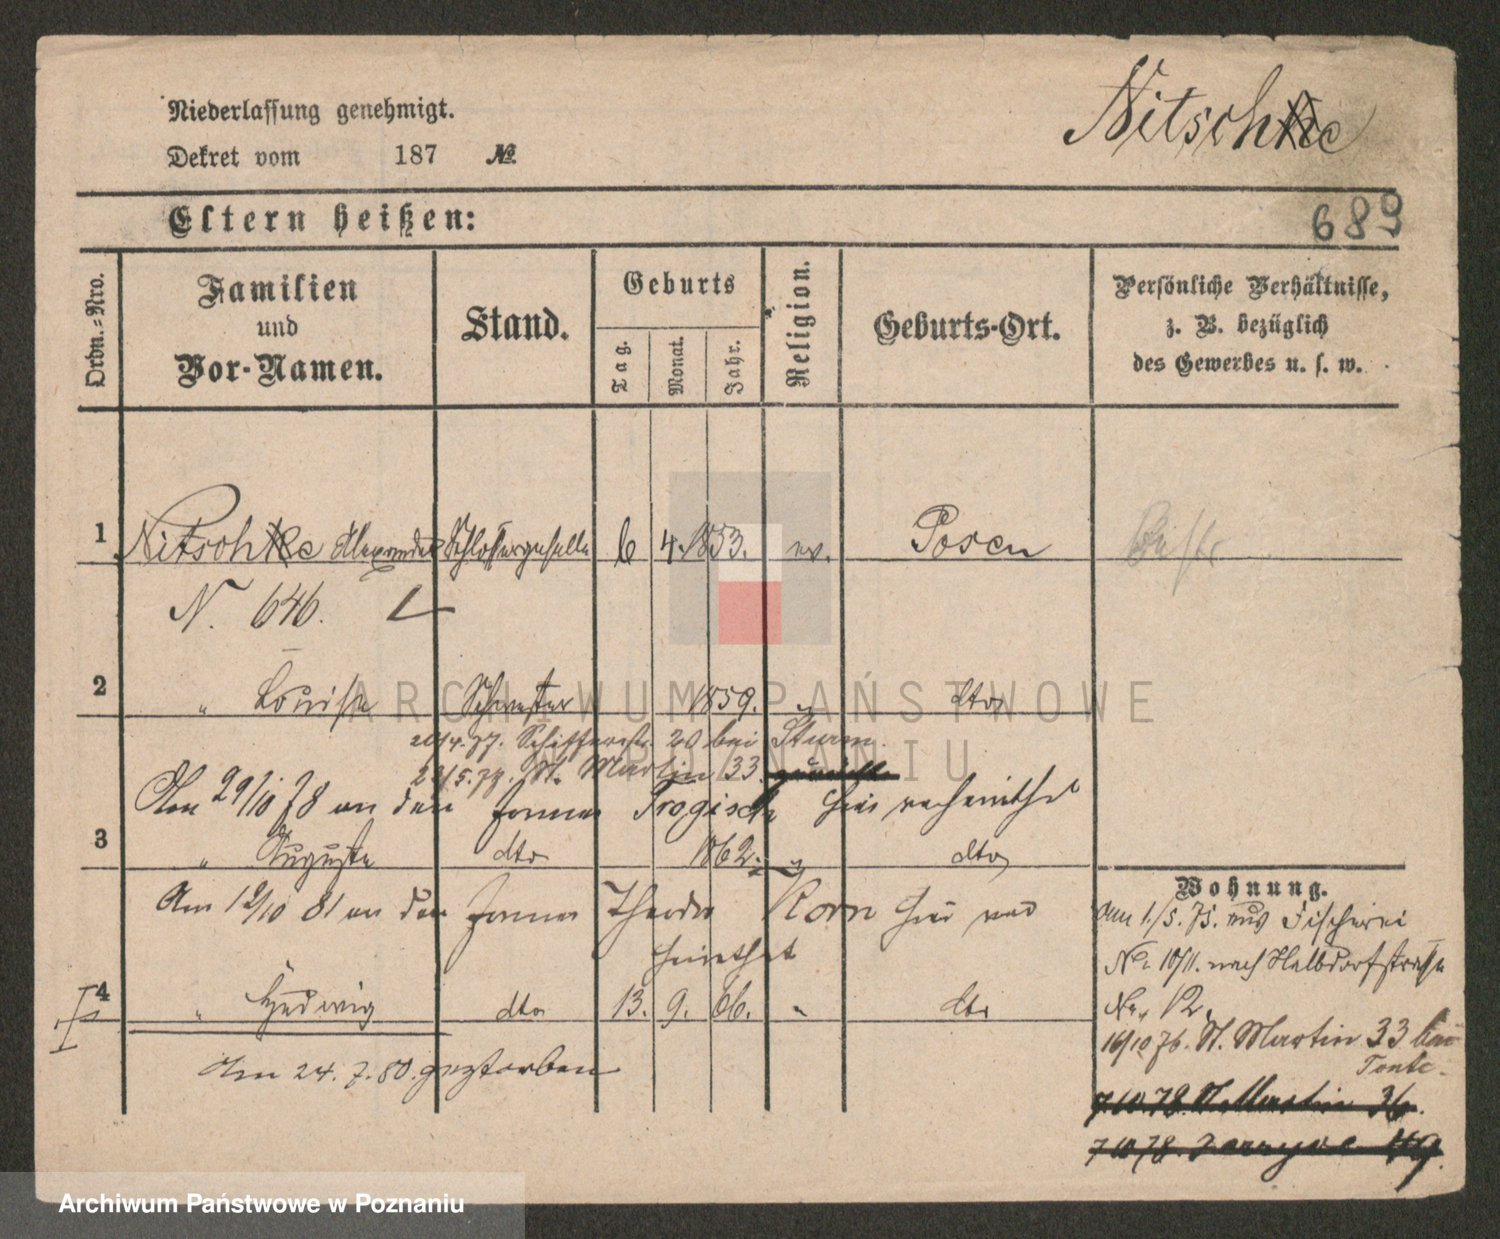 Niederlassung genehmigt.
Dekret vom 187 №
Nitschke
Eltern heißen:
689
Ordn.-Nro.
Familien
und
Vor-Namen.
Stand.
Geburts
Tag.
Monat.
Jahr.
Religion.
Geburts-Ort.
Persönliche Verhältnisse,
z. B. bezüglich
des Gewerbes u. s. w.
1 Nitschke Alexander Schlossergeselle 6 4. 1853. ev. Posen
N. 646.
2 " Louise Schwester 1859. " dto
20/4.77. Schifferstr. 20 bei Sturm
St. Martin 33.
Am 29/10 78 an den
hier verheirathet
3 " Auguste dto 1862. " dto
Am 12/10 81 an den Korn hier ver
heirathet
4 " Hedwig dto 13. 9. 66. " dto
Am 24. 7. 80. gestorben
Wohnung.
Am 1./5. 75. aus Fischerei
No. 10/11. nach Halbdorfstrasse
No. 12.
16/10 76. St. Martin 33 bei
7 10 78. St. Martin 36.
7 10 78.
ARCHIWUM PAŃSTWOWE
W POZNANIU
Archiwum Państwowe w Poznaniu